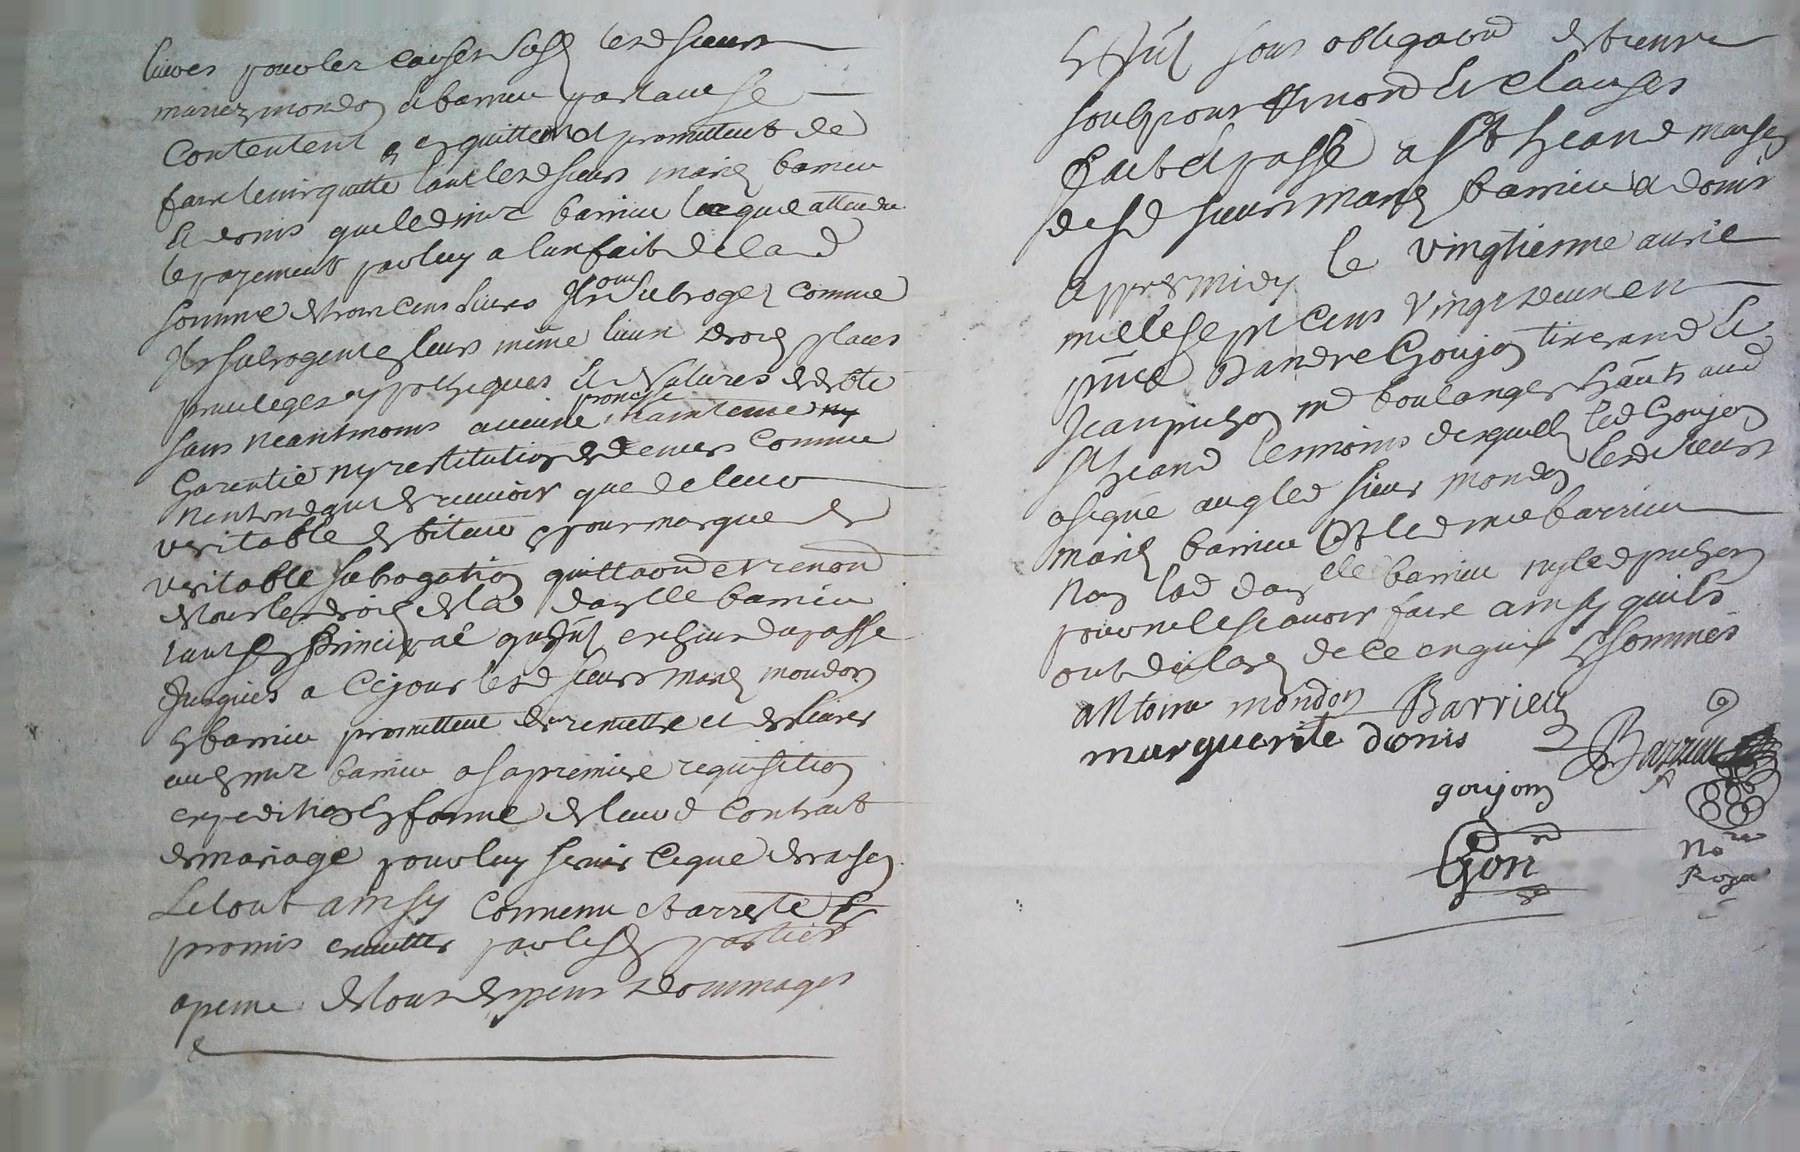 livres pour les causes lesd sieurs
mariez mondon et barrieu par laue se
contentent et quittent promettent de
faire tenir quitte tant lesd sieurs mariez barrieu
et donis que led mre barrieu lequel attendu
le payement par luy a linsfait de lad
somme de trois cens livres Ils ont subrogez comme
Ils subrogent en leurs même lieux droits places
privileges yppotheques et de
sans neantmoins aucune promesse maintenue ny
Garentie ny restitution de deniers comme
nentendant recevoir que de leur
veritable debiteur et pour marque de
veritable subrogation quittaon et renond
de tous les droits de lad dayelle barrieu
tant en Principal quInt escheus du passé
Jusques a ce jour lesd sieurs mariez mondon
et barrieu promettent de remettre et delivrer
aud mre barrieu a sa premiere requisition
expedition en forme de leurd contrait
de mariage pour luy servir ce que de raison
Le tout ainsy convenu et arresté et
promis par les parties
a peine de tous despens dommages
et Int sous obligaond de biens
renond et clauses
fait et passé a St heand maison
desd sieurs mariez barrieu et donis
appres midy le vingtienne avril
mille sept cens vingt deux en
pñce Dandre Goujon tixerand et
Jean pichon md boulanger hãnts aud
St heand temoins desquels led Goujon
a signé avec led sieur mondon lesd sieurs
mariez barrieu et led mre barrieu
non lad dayelle barrieu ny led pichon
pour ne le scavoir faire ainsy quils
ont declaré de ce enquis et sommés
antoine mondon Barrieu
marguerite donis Barrieu
goujon
Gon
Nore
Royal